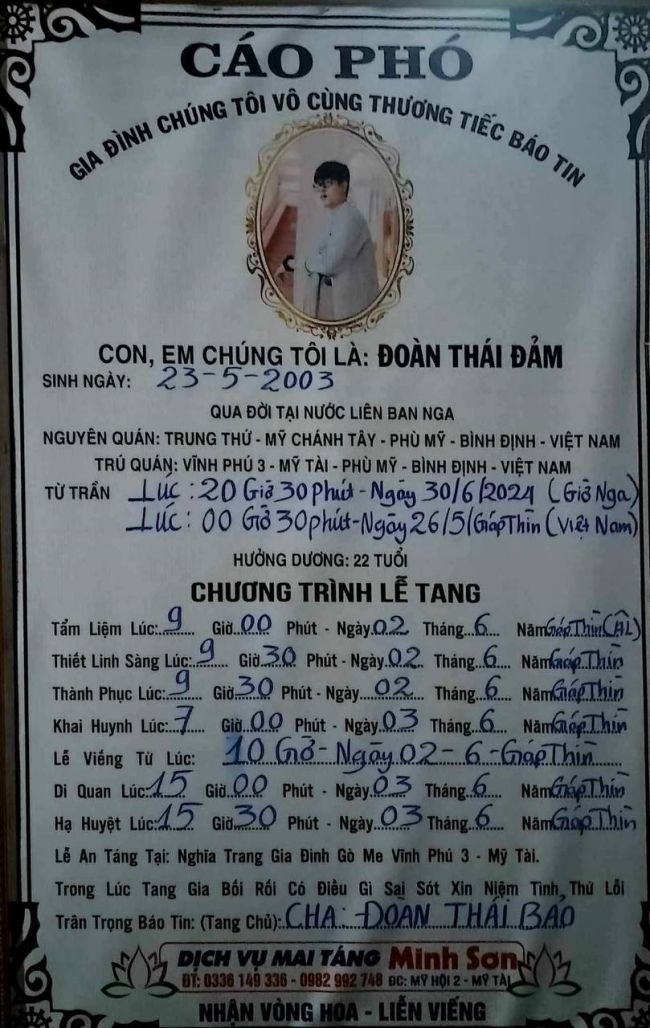 CÁO PHÓ
GIA ĐÌNH CHÚNG TÔI VÔ CÙNG THƯƠNG TIẾC BÁO TIN
CON, EM CHÚNG TÔI LÀ: ĐOÀN THÁI ĐẢM
SINH NGÀY: 23-5-2003
QUA ĐỜI TẠI NƯỚC LIÊN BAN NGA
NGUYÊN QUÁN: TRUNG THỨ - MỸ CHÁNH TÂY - PHÙ MỸ - BÌNH ĐỊNH - VIỆT NAM
TRÚ QUÁN: VĨNH PHÚ 3 - MỸ TÀI - PHÙ MỸ - BÌNH ĐỊNH - VIỆT NAM
TỪ TRẦN Lúc: 20 Giờ 30 phút - Ngày 30/6/2024 (Giờ Nga)
Lúc: 00 Giờ 30 phút - Ngày 26/5/Giáp Thìn (Việt Nam)
HƯỞNG DƯƠNG: 22 TUỔI
CHƯƠNG TRÌNH LỄ TANG
Tẩm Liệm Lúc: 9 Giờ 00 Phút - Ngày 02 Tháng 6 Năm Giáp Thìn (ÂL)
Thiết Linh Sàng Lúc: 9 Giờ 30 Phút - Ngày 02 Tháng 6 Năm Giáp Thìn
Thành Phục Lúc: 9 Giờ 30 Phút - Ngày 02 Tháng 6 Năm Giáp Thìn
Khai Huynh Lúc: 7 Giờ 00 Phút - Ngày 03 Tháng 6 Năm Giáp Thìn
Lễ Viếng Từ Lúc: 10 Giờ - Ngày 02 - 6 - Giáp Thìn
Di Quan Lúc: 15 Giờ 00 Phút - Ngày 03 Tháng 6 Năm Giáp Thìn
Hạ Huyệt Lúc: 15 Giờ 30 Phút - Ngày 03 Tháng 6 Năm Giáp Thìn
Lễ An Táng Tại: Nghĩa Trang Gia Đình Gò Me Vĩnh Phú 3 - Mỹ Tài.
Trong Lúc Tang Gia Bối Rối Có Điều Gì Sai Sót Xin Niệm Tình Thứ Lỗi
Trân Trọng Báo Tin: (Tang Chủ): CHA: ĐOÀN THÁI BẢO
DỊCH VỤ MAI TÁNG Minh Sơn
ĐT: 0336 149 336 - 0982 992 748 ĐC: MỸ HỘI 2 - MỸ TÀI
NHẬN VÒNG HOA - LIỄN VIẾNG